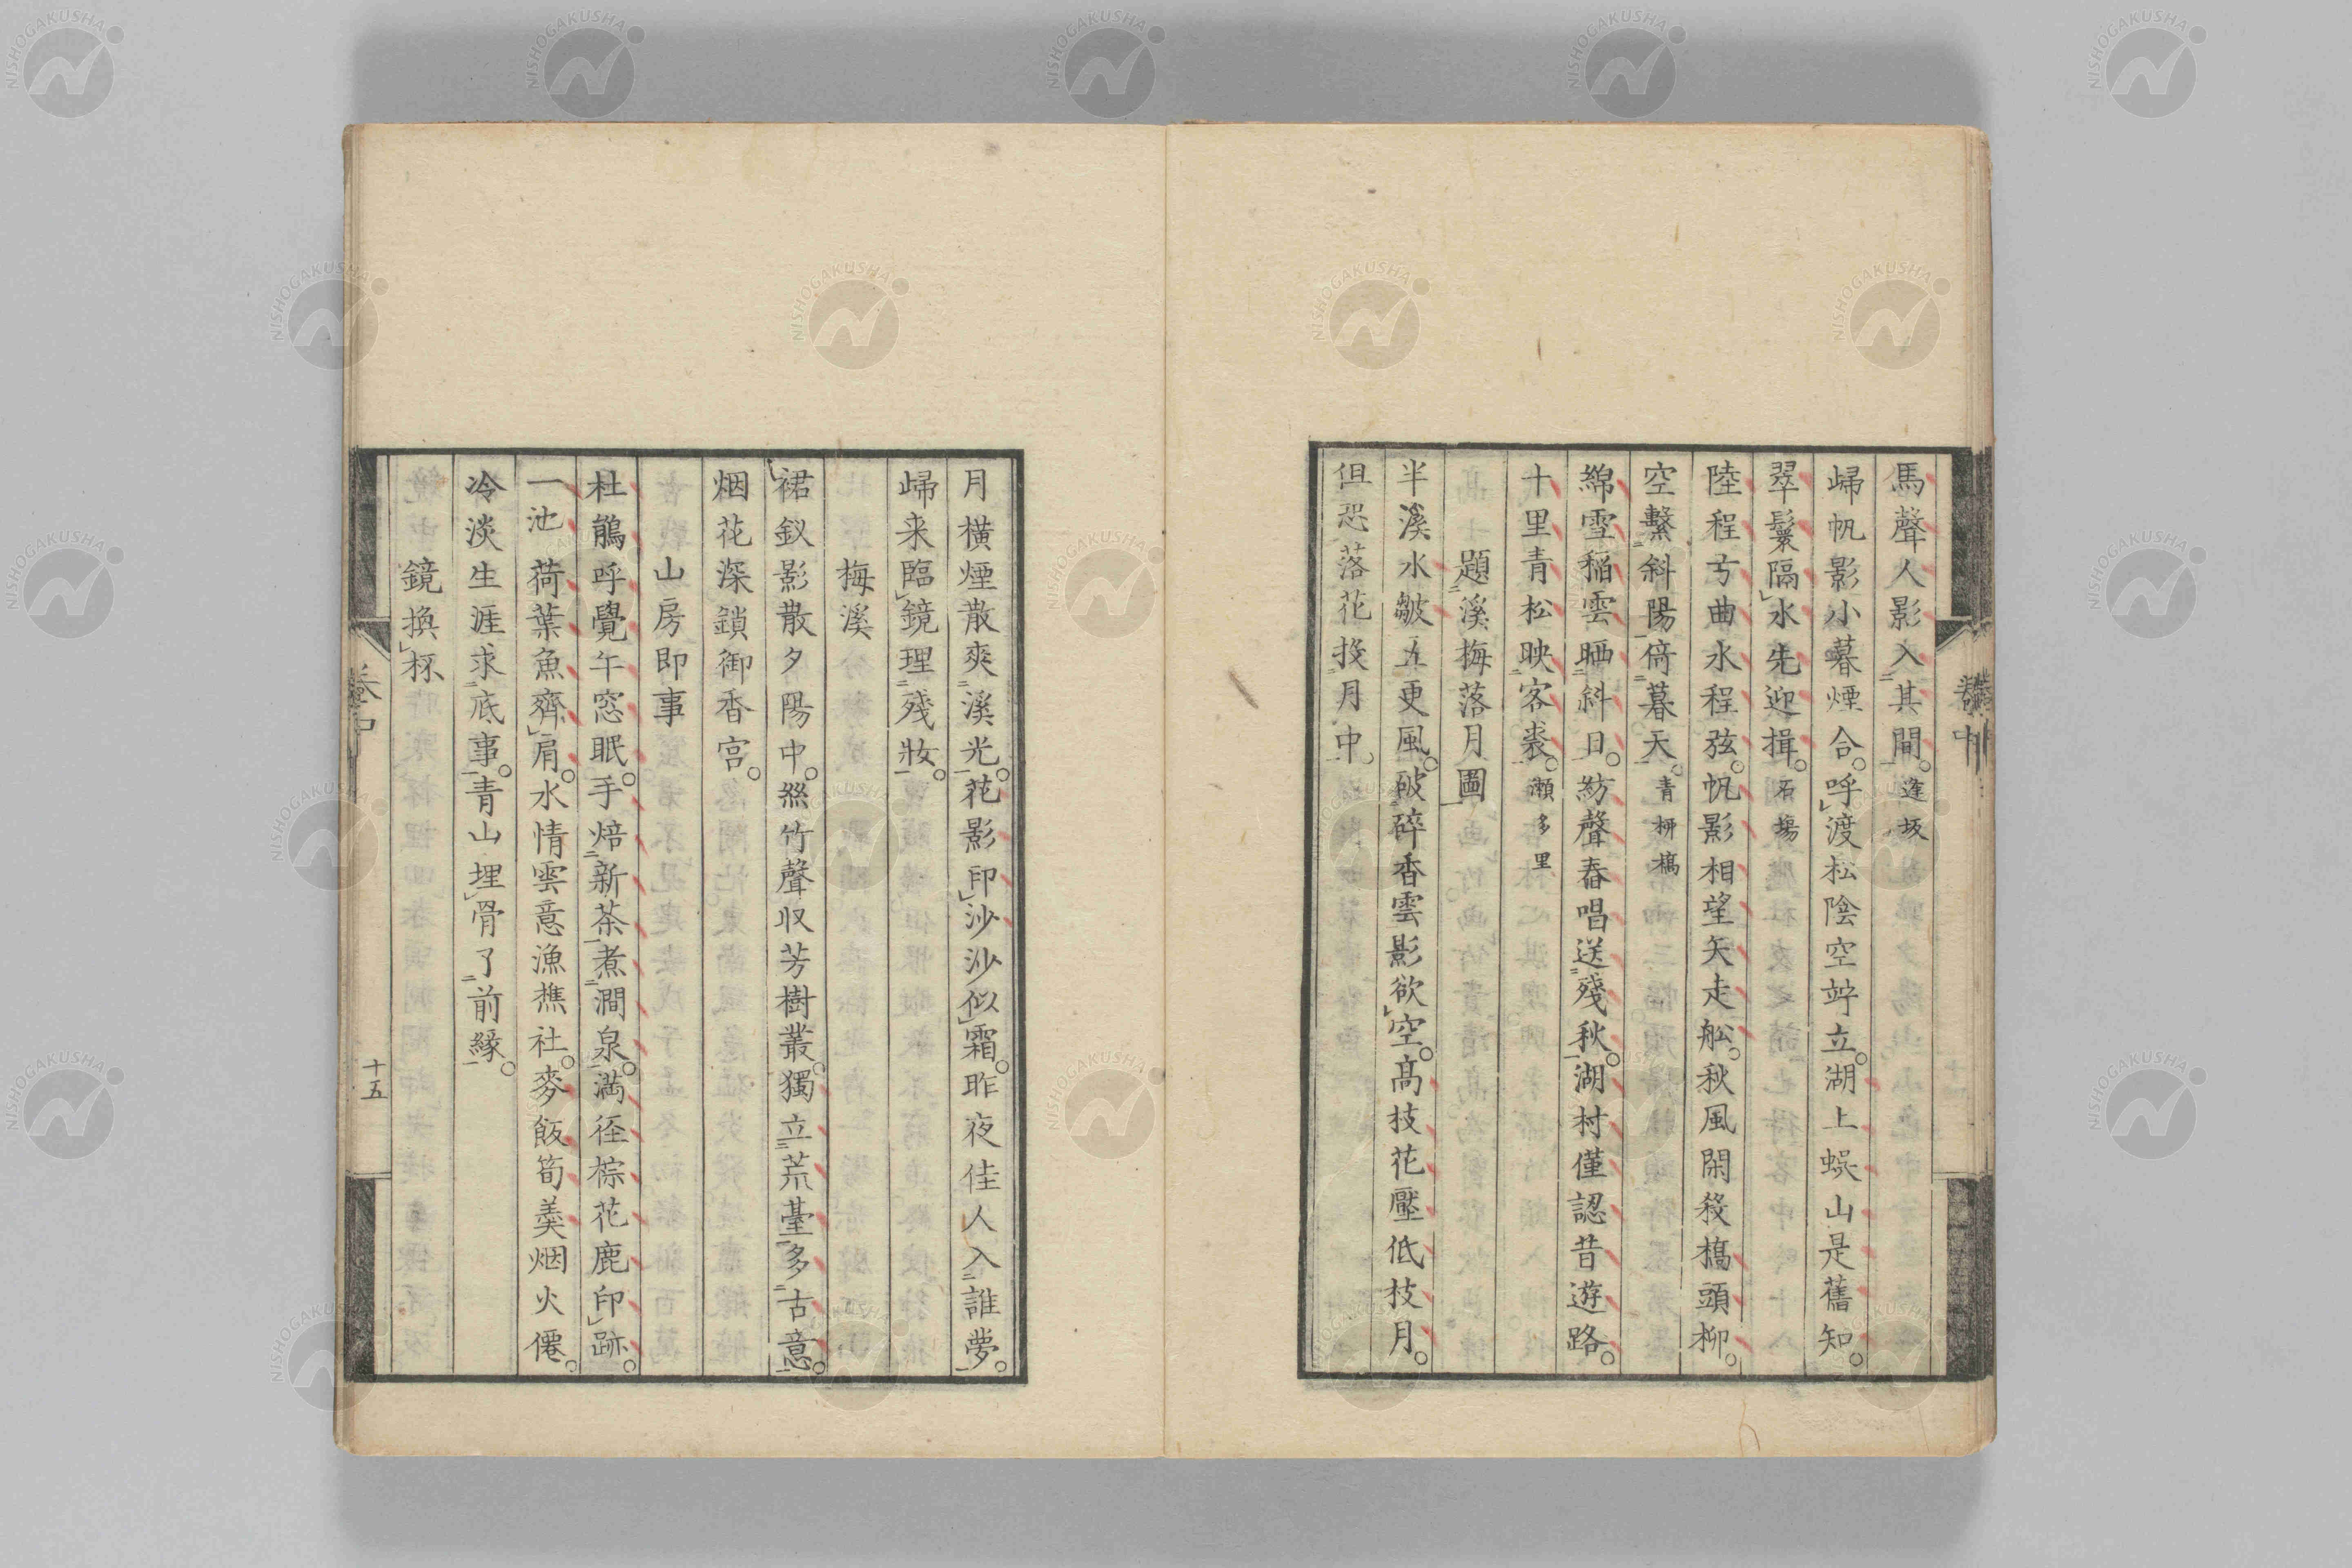 馬聲人影入其間。逢坂
歸帆影小暮煙合。呼渡松陰空竚立。湖上蜈山是舊知。
翠鬟隔水先迎揖。石場
陸程弓曲水程弦。帆影相望矢走舩。秋風閑殺橋頭柳。
空繫斜陽倚暮天。青柳橋
綿雪稲雲晒斜日。紡聲舂唱送殘秋。湖村僅認昔遊路。
十里青松映客裘。瀬多里
題溪梅落月圖
半溪水皺五更風。破碎香雲影欲空。高枝花壓低枝月。
但恐落花投月中。
卷中
月横煙散爽溪光。花影印沙沙似霜。昨夜佳人入誰夢。
歸来臨鏡理殘妝。
梅溪
裙釵影散夕陽中。絲竹聲収芳樹叢。獨立荒臺多古意。
烟花深鎖御香宮。
山房即事
杜鵑呼覺午窓眠。手焙新茶煮澗泉。満径棕花鹿印跡。
一池荷葉魚齊肩。水情雲意漁樵社。麥飯筍羹烟火僊。
冷淡生涯求底事。青山埋骨了前緣。
鏡換杯
卷中
十五
NISHOGAKUSHA